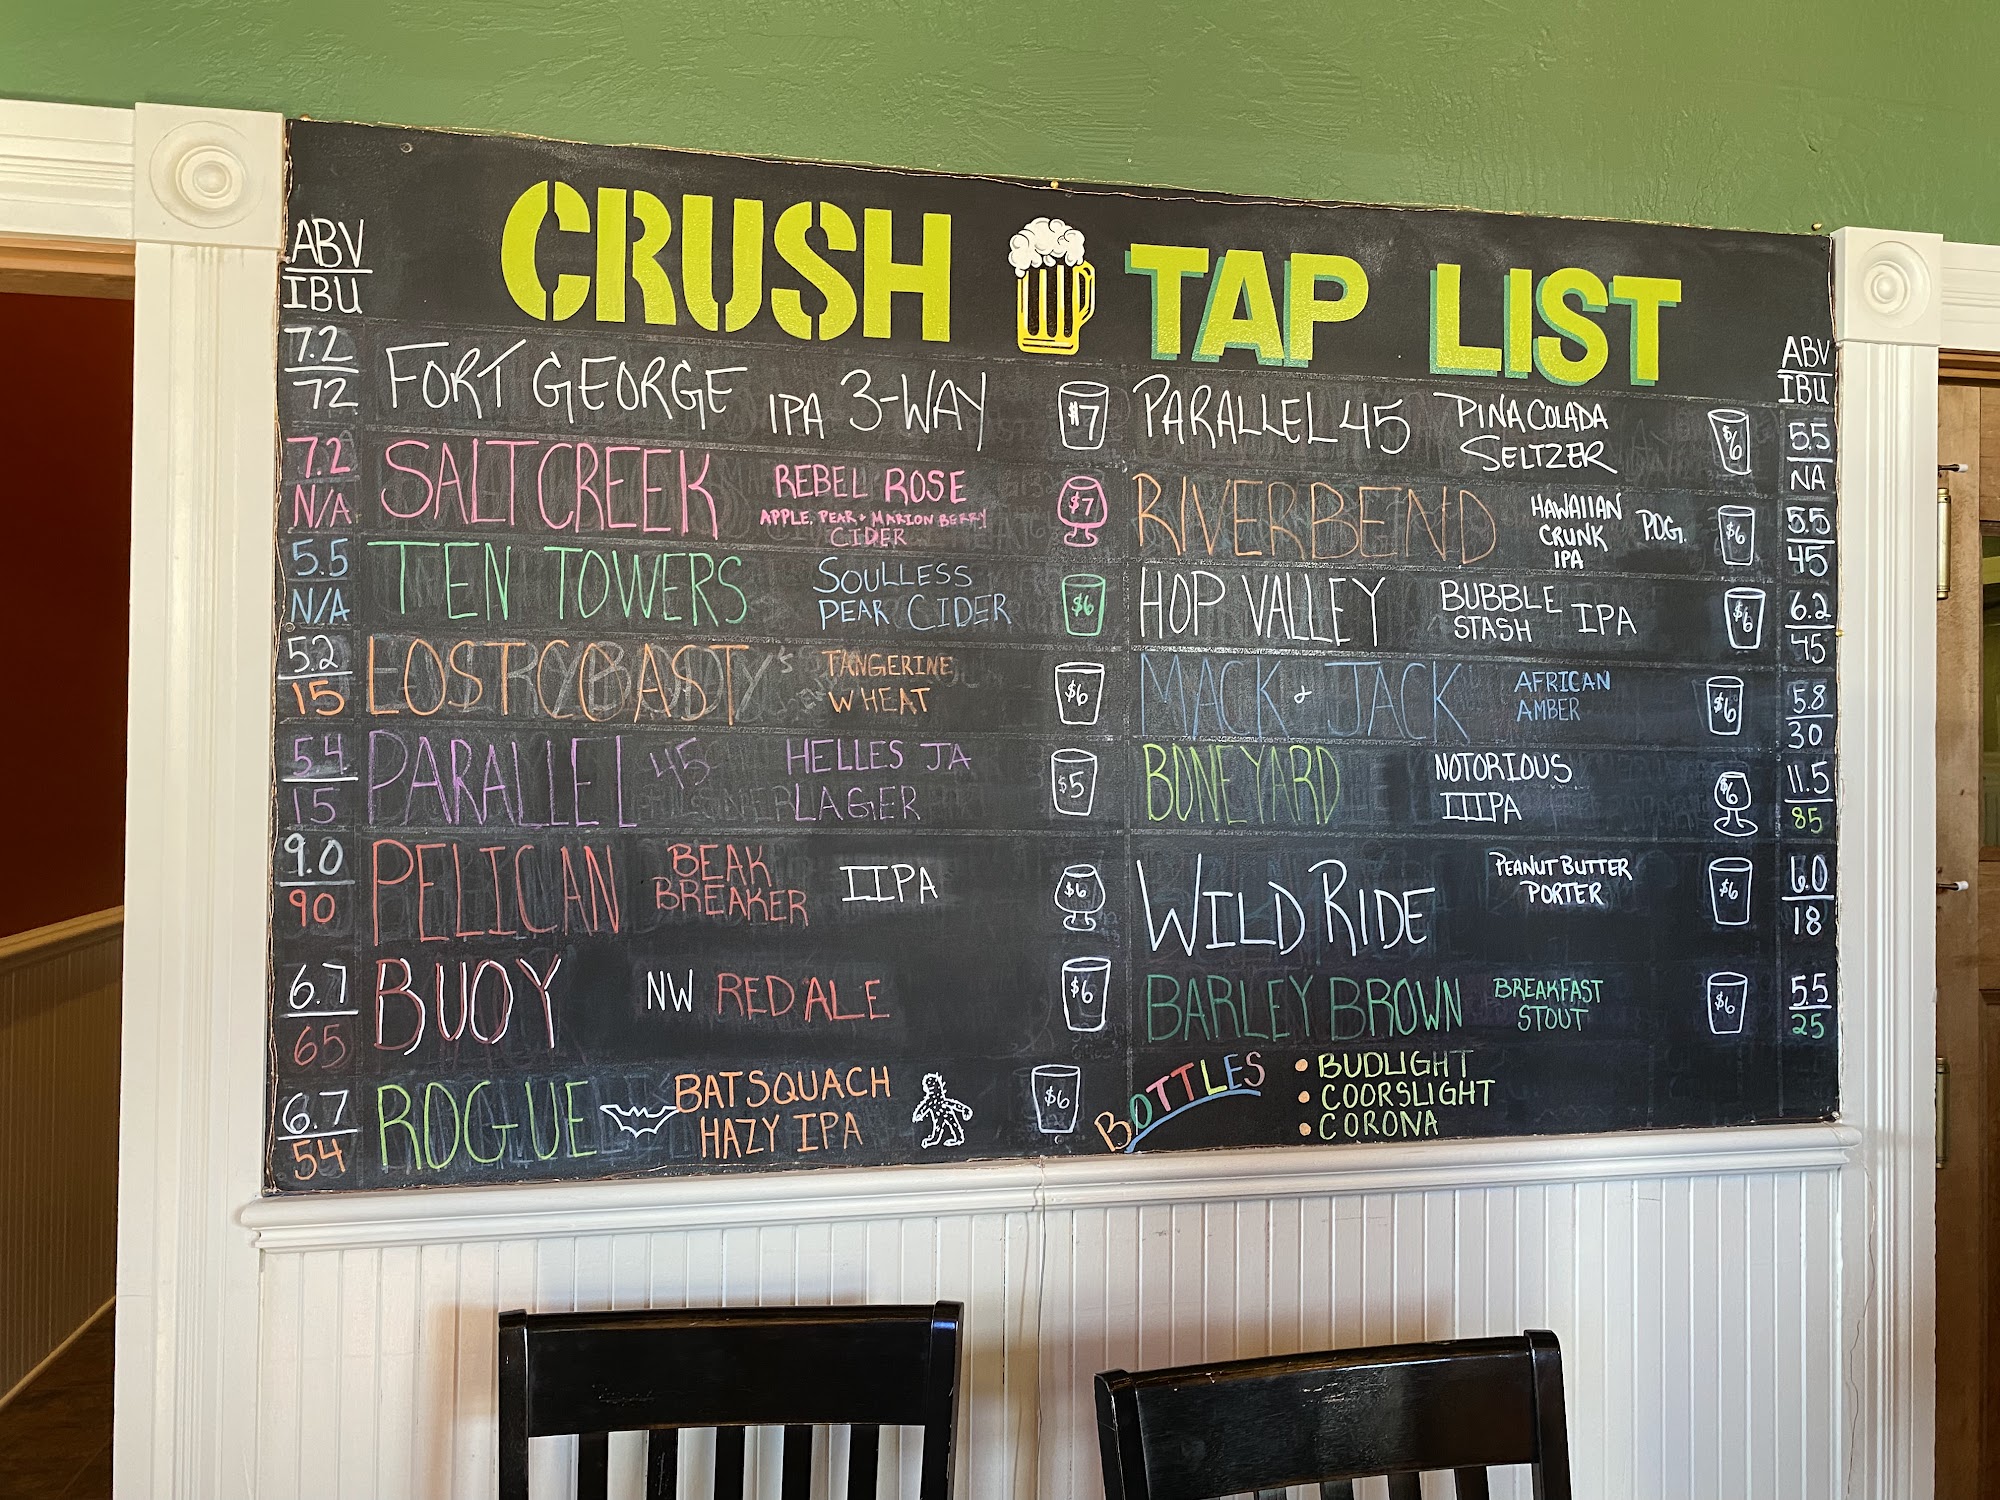 CRUSH TAP LIST
ABV
IBU
7.2
72
FORT GEORGE IPA 3-WAY $7
7.2
N/A
SALT CREEK REBEL ROSE
APPLE, PEAR + MARION BERRY
CIDER
$7
5.5
N/A
TEN TOWERS SOULLESS
PEAR CIDER
$6
5.2
15
LOST COAST TANGERINE
WHEAT
$6
5.4
15
PARALLEL 45 HELLES JA
LAGER
$5
9.0
90
PELICAN BEAK
BREAKER
IIPA
$6
6.7
65
BUOY NW RED ALE $6
6.7
54
ROGUE BATSQUACH
HAZY IPA
$6
ABV
IBU
PARALLEL 45 PINA COLADA
SELTZER
$6
5.5
NA
RIVERBEND HAWAIIAN
CRUNK
IPA
P.O.G.
$6
5.5
45
HOP VALLEY BUBBLE
STASH
IPA
$6
6.2
45
MACK & JACK AFRICAN
AMBER
$6
5.8
30
BONEYARD NOTORIOUS
IIIPA
$6
11.5
85
WILD RIDE PEANUT BUTTER
PORTER
$6
6.0
18
BARLEY BROWN BREAKFAST
STOUT
$6
5.5
25
BOTTLES
• BUDLIGHT
• COORSLIGHT
• CORONA